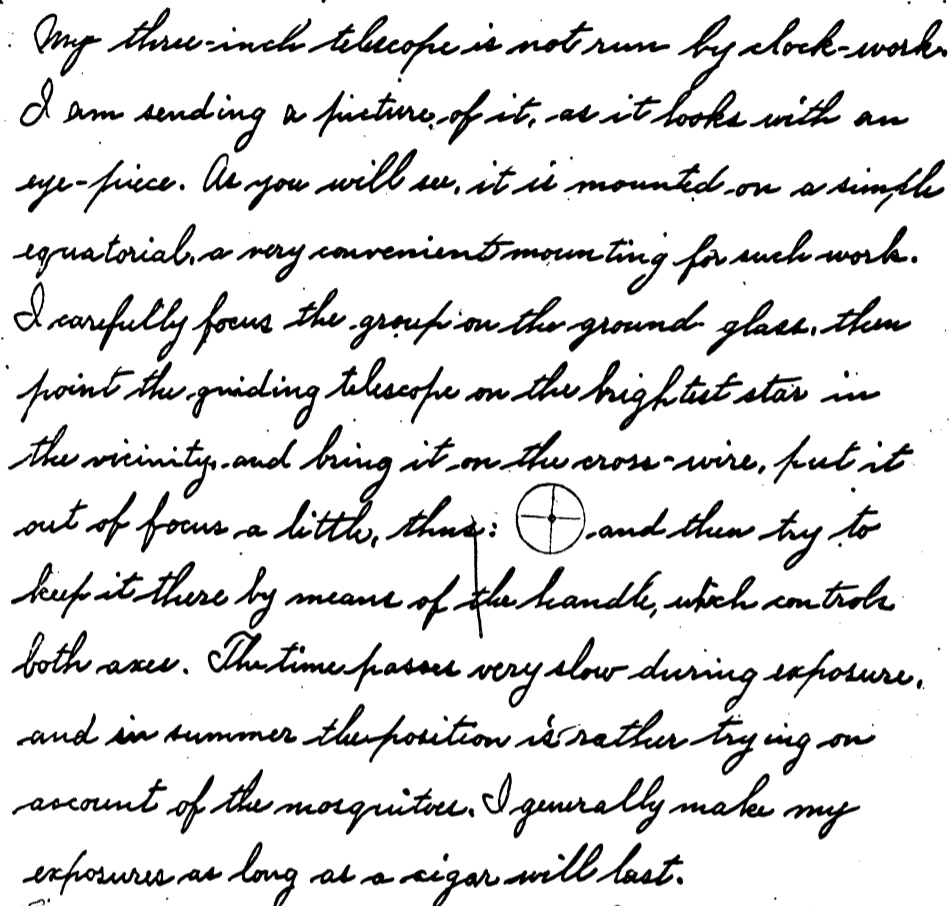 My three-inch telescope is not run by clock-work.
I am sending a picture of it, as it looks with an
eye-piece. As you will see, it is mounted on a simple
equatorial, a very convenient mounting for such work.
I carefully focus the group on the ground glass, then
point the guiding telescope on the brightest star in
the vicinity, and bring it on the cross-wire, put it
out of focus a little, thus: and then try to
keep it there by means of the handle, which controls
both axes. The time passes very slow during exposure,
and in summer the position is rather trying on
account of the mosquitoes. I generally make my
exposures as long as a cigar will last.